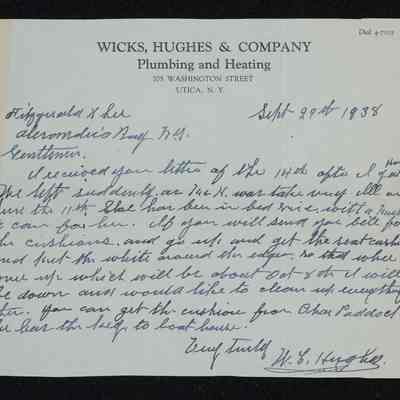 Dial 4-7103
WICKS, HUGHES & COMPANY
Plumbing and Heating
UTICA, N. Y.
WASHINGTON STREET
Sept 29th 1938
Fitzgerald & Lee
Alexandria Bay N.Y.
Gentlemen.
I received your letter of the 14th after I got Home
We left suddenly as Mrs H. was taken very ill on
the 11th. She has been in bed since, with a Nurse
to care for her. If you will send your bill for
the cushions, and go up and get the seat cushion
and put the white around the edge, so that when I
come up which will be about Oct 8th it will
be down and would like to clean up everything
then. You can get the cushions from Chas Paddock
he has the key to boat house.
Very truly
W. E. Hughes.